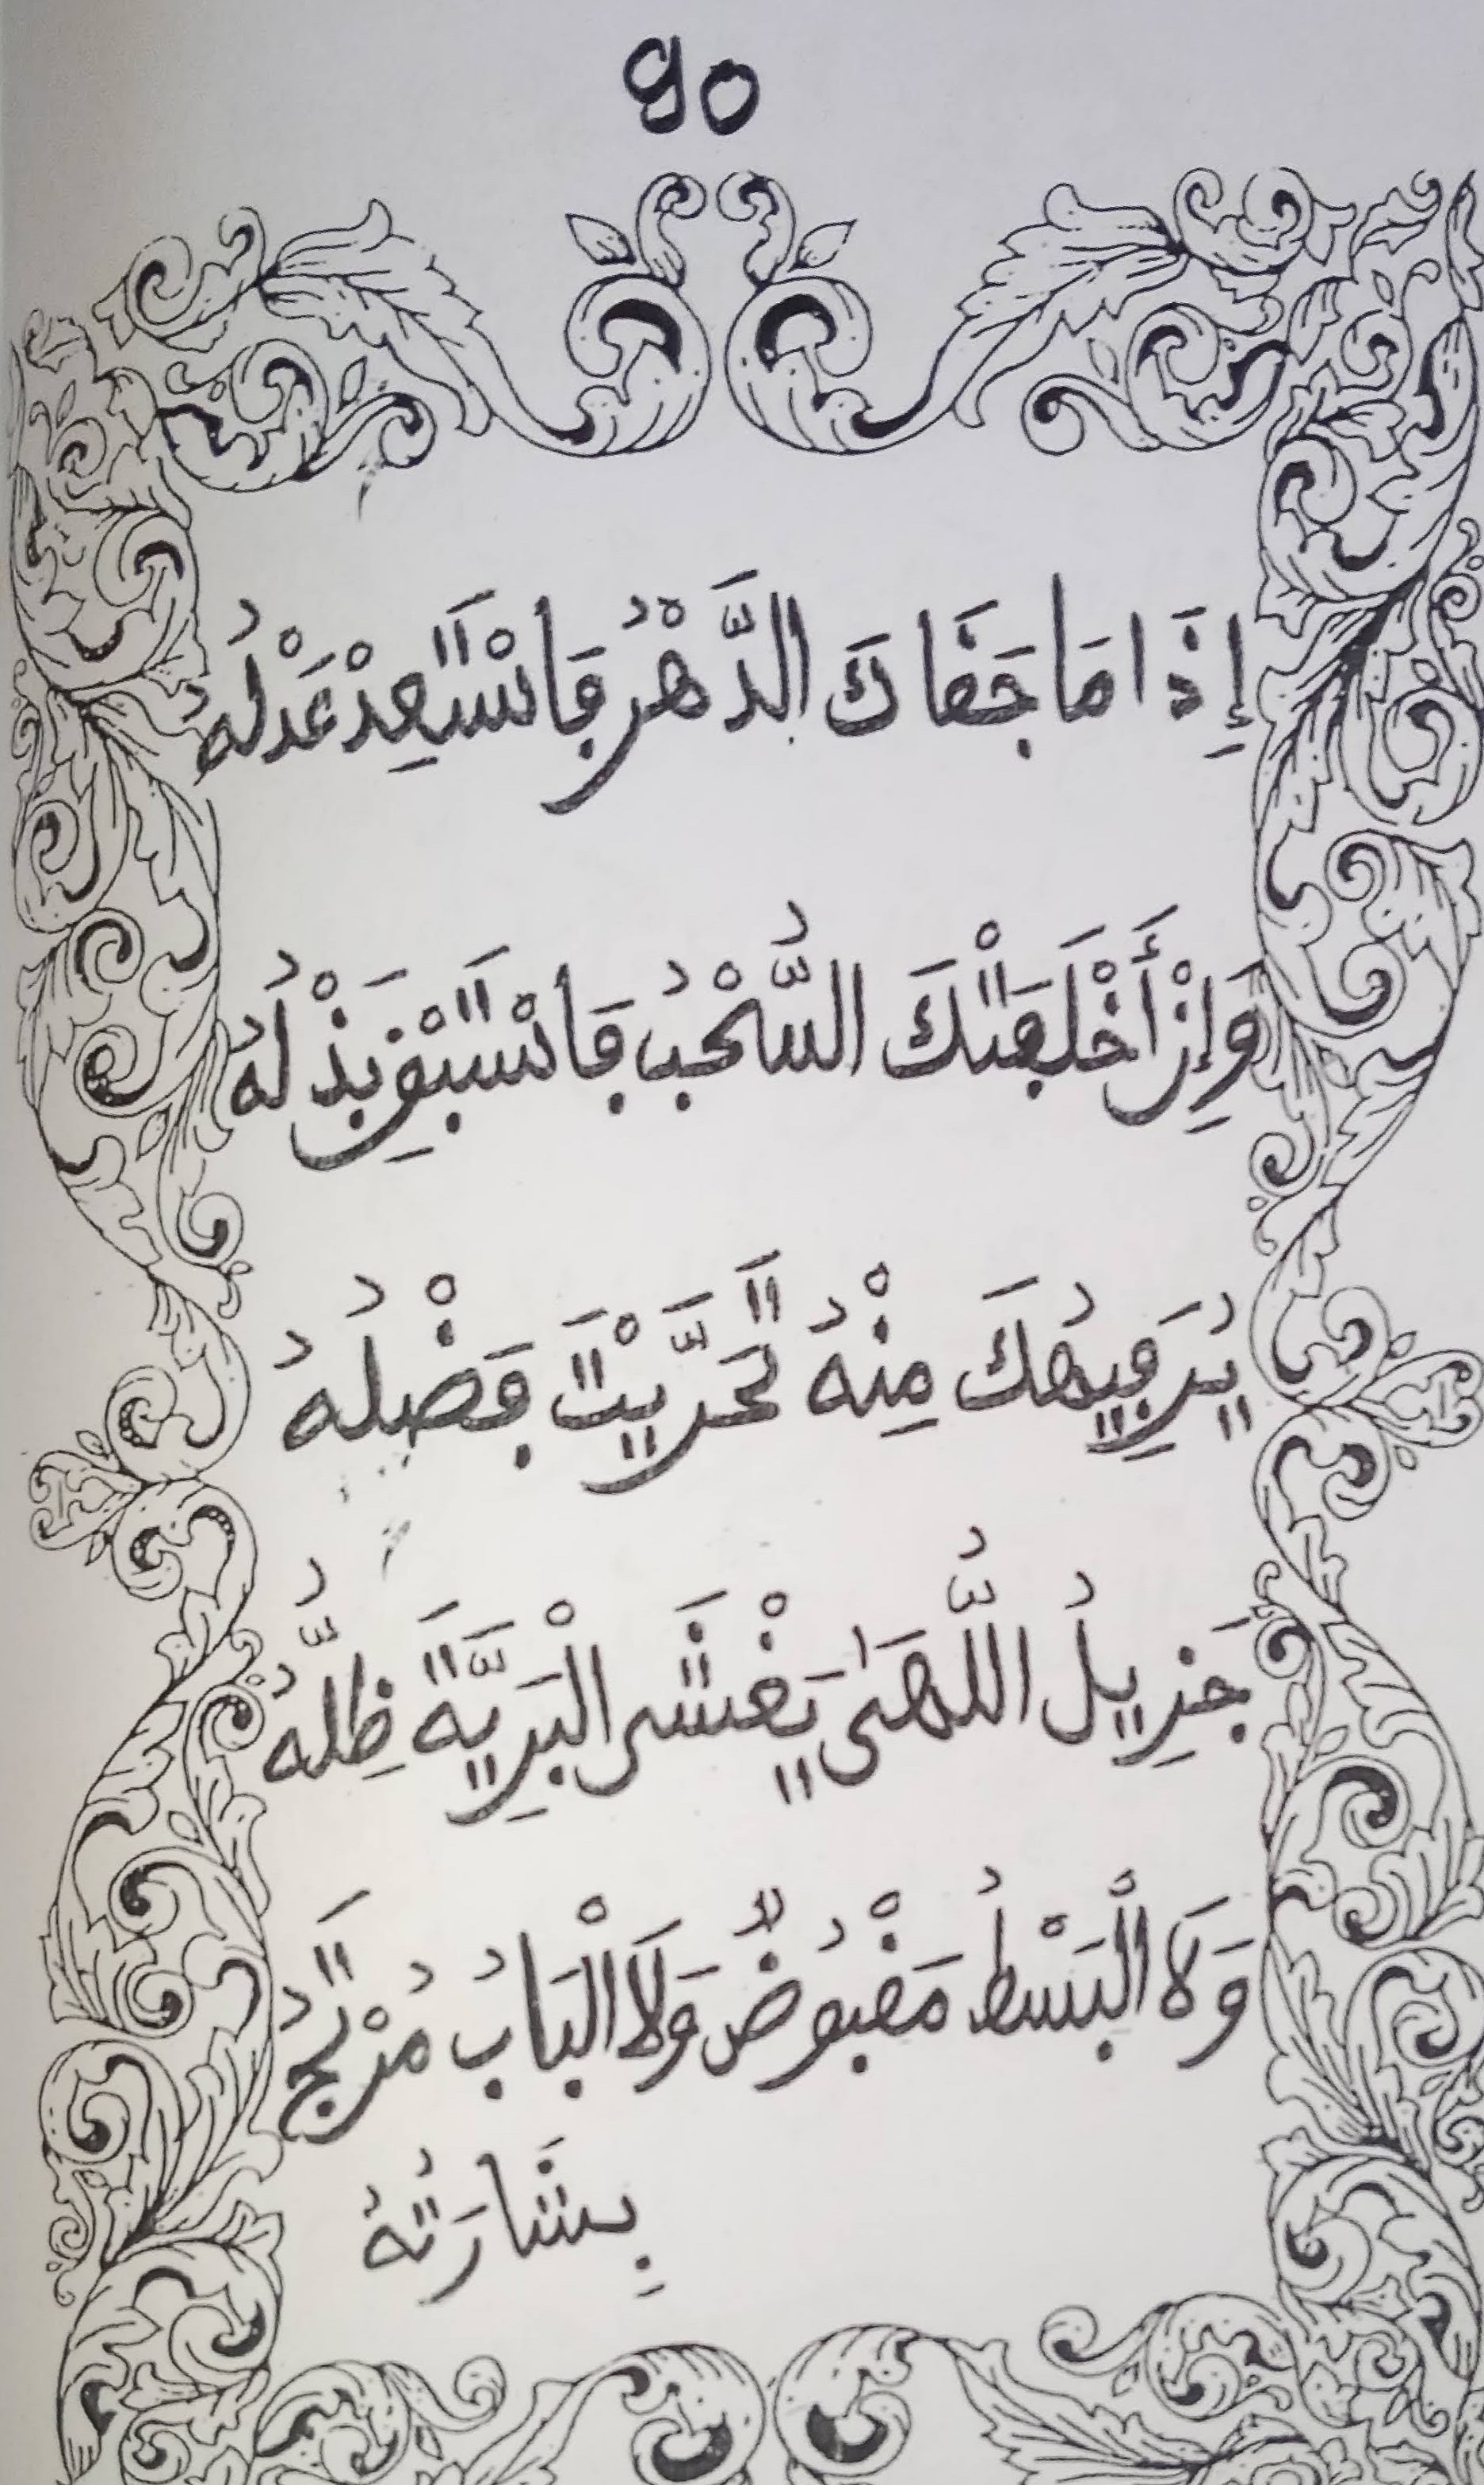 90
إِذَا مَا جَفَاكَ الدَّهْرُ فَاسْتَعِدْ عَدْلُهُ
وَإِنْ أَخْلَفَتْكَ السُّحْبُ فَاسْتَبْقِ بَذْلُهُ
يُرَفِيهُكَ مِنْهُ تَحَرَّيْتَ فَضْلُهُ
جَزِيلُ اللُّهَىٰ يَغْشَى الْبَرِيَّةَ ظِلُّهُ
وَلَا الْبَسْطُ مَقْبُوضٌ وَلَا الْبَابُ مُرْتَجُ
بِشَارَتُهُ